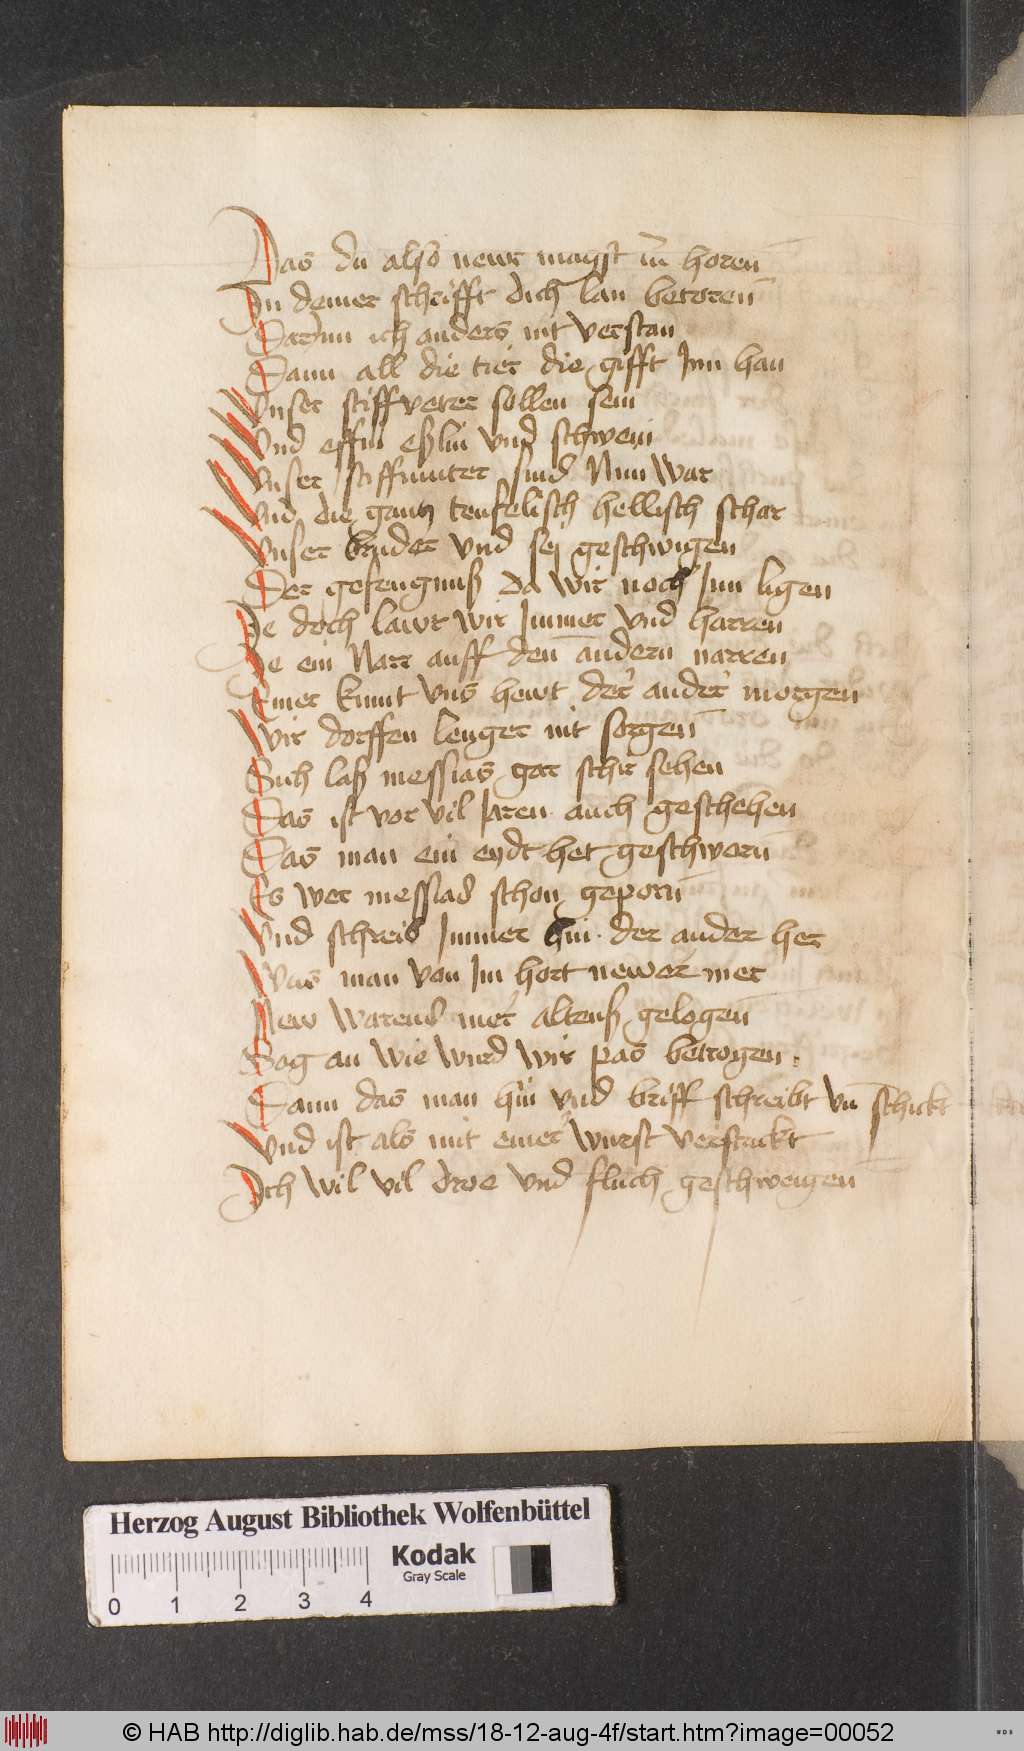 Das du also newr magst in̄ horen̄
In deiner schrifft dich lan betoren̄
Dardurch ich anders nit verstan
Dann all die tier die gifft Inn han
Vnser stiffveter sollen sein
Vnd effin eßlin vnd schwein
Vnser stiffmuter sind Nun war
Vnd die gantz teufelisch hellisch schar
Vnser bruder vnd sej geschwigen
Der gefengnuß da wir noch Inn ligen
Je doch laur wir Immer vnd harren
Je ein Narr auff den andern narren
Einer kumt vns hewt der ander morgen
Wir dorffen lenger nit sorgen̄
Sich laß messias gar schir sehen
Das ist vor vil Jaren auch geschehen
Das man ein eydt het geschworn̄
Es wer messias schon geporn̄
Vnd schreib Immer hin der ander her
Was man von Im hort newer mer
New warens mer altenß gelogen̄
Sag an wie wurd wir pas betrogen
Dann das man hin vnd briff schreibt vn̄ schickt
Vnd ist als mit einer wurst verstrickt
Ich wil vil droe vnd fluch geschweigen
Herzog August Bibliothek Wolfenbüttel
Kodak
Gray Scale
0 1 2 3 4
© HAB http://diglib.hab.de/mss/18-12-aug-4f/start.htm?image=00052
WDB